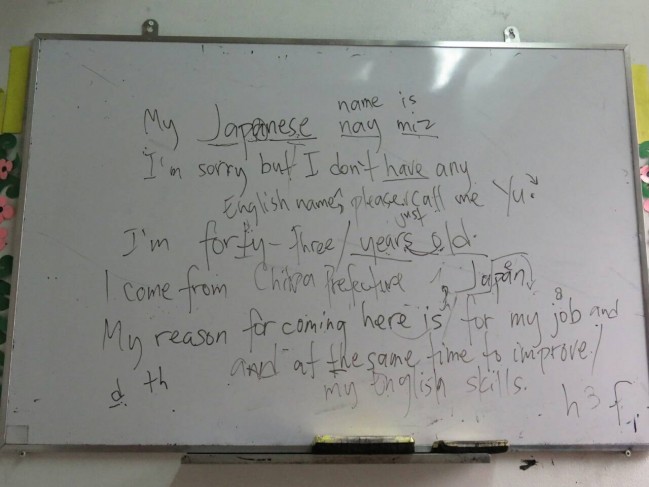 name is
My Japanese nay miz
I'm sorry but I don't have any
English name, please call me Yu.
just
I'm forty-three / years old.
I come from Chiba Prefecture, Japan
My reason for coming here is for my job and
and at the same time to improve /
my English skills.
d th
h 3 f